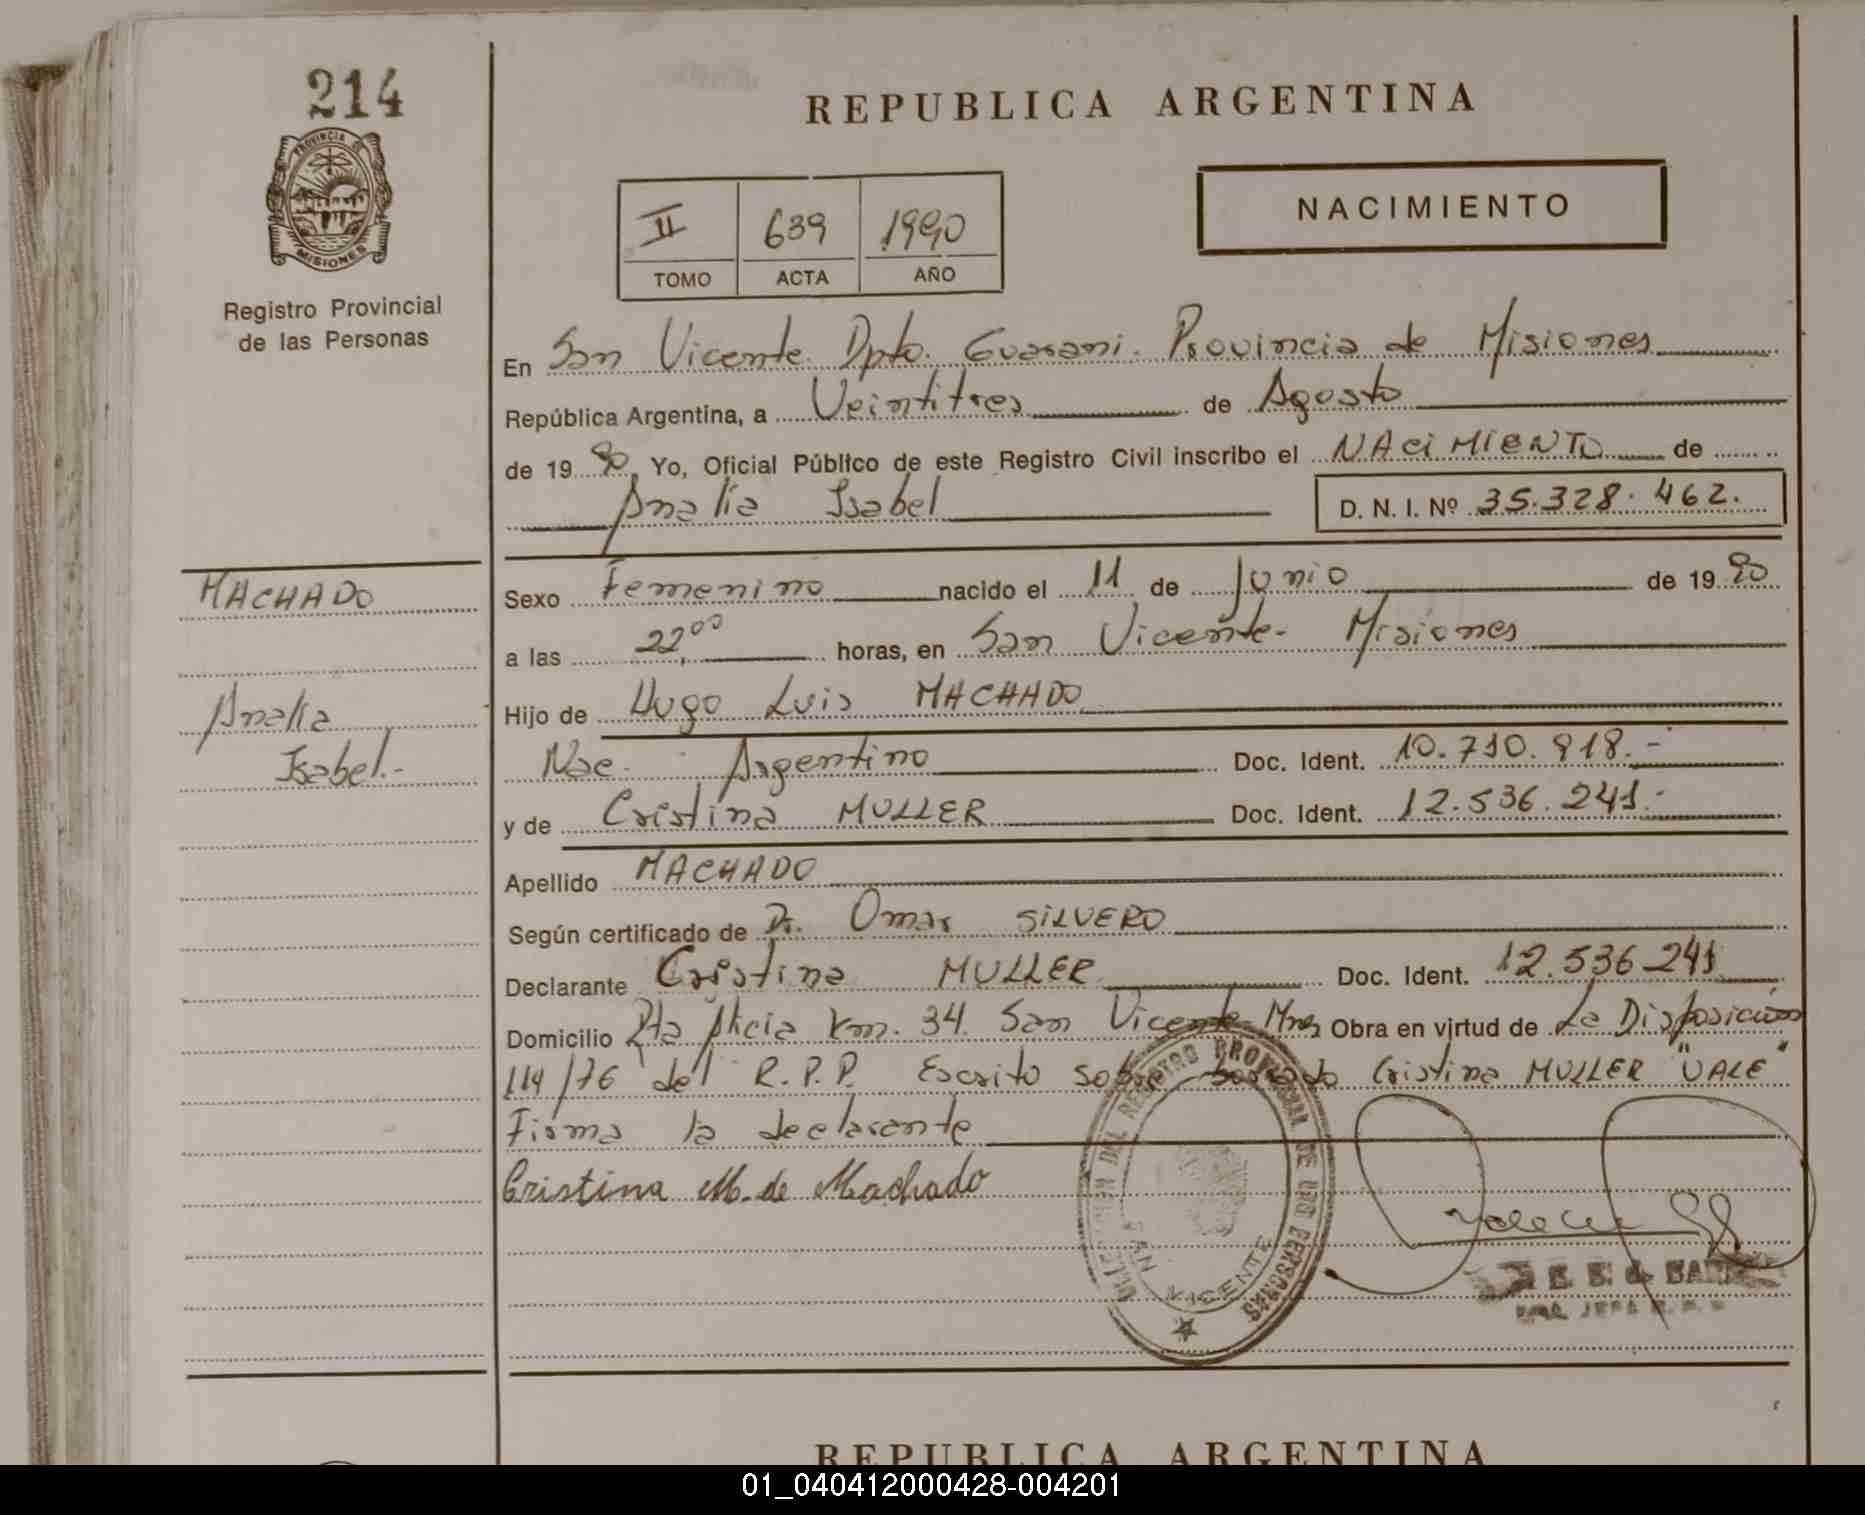 214
PROVINCIA D
MISIONES
Registro Provincial
de las Personas
REPUBLICA ARGENTINA
II 639 1990
TOMO ACTA AÑO
NACIMIENTO
En San Vicente. Dpto. Guarani. Provincia de Misiones
República Argentina, a Veintitres de Agosto
de 19 90, Yo, Oficial Público de este Registro Civil inscribo el NACiMiENTO de
Analía Isabel
D. N. I. Nº 35.328.462.
MACHADO
Analía
Isabel.-
Sexo Femenino nacido el 11 de Junio de 19 90
a las 22,00 horas, en San Vicente- Misiones
Hijo de Hugo Luis MACHADO
Nac. Argentino Doc. Ident. 10.710.918.-
y de Cristina MULLER Doc. Ident. 12.536.241.-
Apellido MACHADO
Según certificado de Dr. Omar SiLVERO
Declarante Cristina MULLER Doc. Ident. 12.536.241
Domicilio Rta Alicia Km. 34. San Vicente-Mnes Obra en virtud de La Disposición
114/76 del R.P.P. Escrito sobre borrado Cristina MULLER "VALE"
Firma la declarante
Cristina M. de Machado
DEL REGISTRO PROVINCIAL DE LAS PERSONAS
SAN VICENTE
REPUBLICA ARGENTINA
01_040412000428-004201